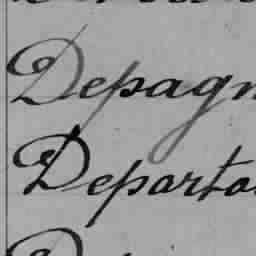 Depagn
Departo